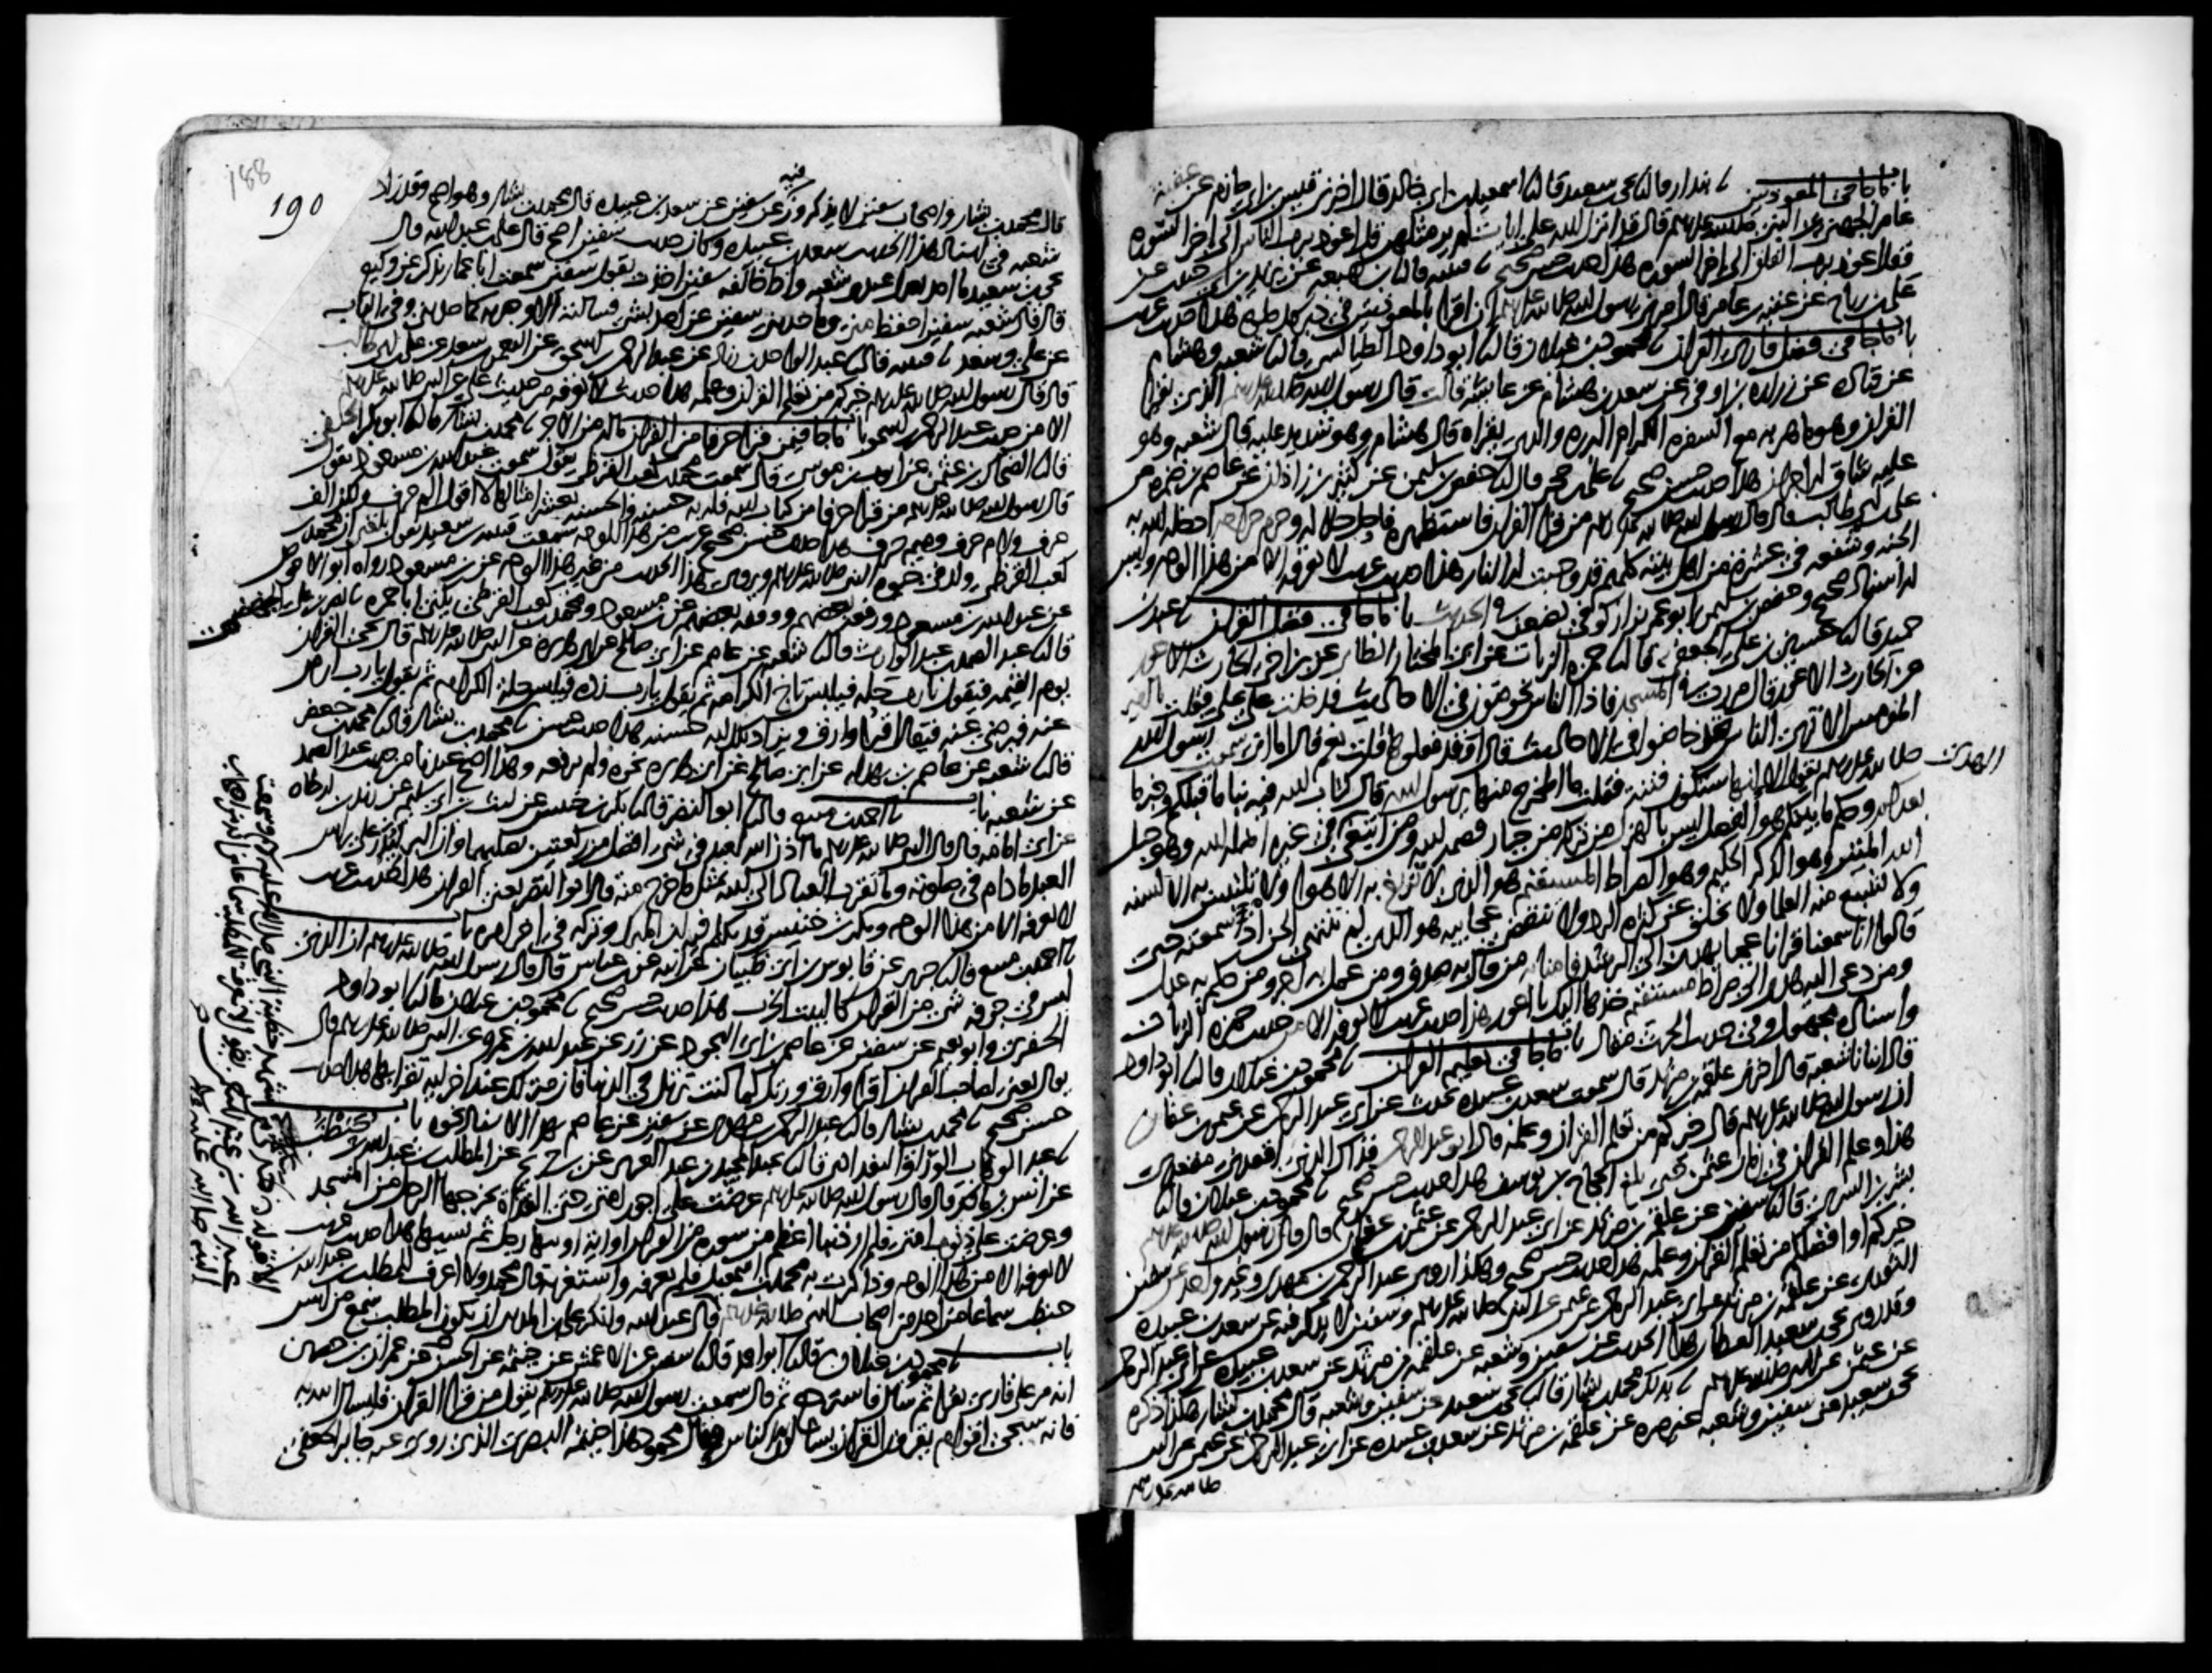 باب ما جا في المعوذتين نا بندار قال نا يحيى بن سعيد قال نا اسمعيل بن ابي خالد قال اخبرني قيس بن ابي حازم عن عقبة بن
عامر الجهني عن النبي صلى الله عليه وسلم قال قد انزل الله علي ايات لم ير مثلهن قل اعوذ برب الناس الى اخر السورة
وقل اعوذ برب الفلق الى اخر السورة هذا حديث حسن صحيح نا قتيبة قال نا ابن لهيعة عن يزيد بن ابي حبيب عن
علي بن رباح عن عقبة بن عامر قال امرني رسول الله صلى الله عليه وسلم ان اقرا بالمعوذتين في دبر كل صلوة هذا حديث غريب
باب ما جا في فضل قاري القران نا محمود بن غيلان قال نا ابو داود الطيالسي قال نا شعبة وهشام
عن قتادة عن زرارة بن اوفى عن سعد بن هشام عن عايشة قالت قال رسول الله صلى الله عليه وسلم الذي يقرا
القران وهو ماهر به مع السفرة الكرام البررة والذي يقراه قال هشام وهو شديد عليه قال شعبة وهو
عليه شاق له اجران هذا حديث حسن صحيح نا علي بن حجر قال نا حفص بن سليمن عن كثير بن زاذان عن عاصم بن ضمرة عن
علي بن ابي طالب قال قال رسول الله صلى الله عليه وسلم من قرا القران فاستظهره فاحل حلاله وحرم حرامه ادخله الله به
الجنة وشفعه في عشرة من اهل بيته كلهم قد وجبت له النار هذا حديث غريب لا نعرفه الا من هذا الوجه وليس
له اسناد صحيح وحفص بن سليمن ابو عمر بزاز كوفي يضعف في الحديث باب ما جا في فضل القران نا عبد بن
حميد قال نا حسين بن علي الجعفي قال نا حمزة الزيات عن ابي المختار الطائي عن ابن اخي الحارث الاعور
عن الحارث الاعور قال مررت في المسجد فاذا الناس يخوضون في الاحاديث فدخلت على علي فقلت يا امير
المومنين الا ترى الناس قد خاضوا في الاحاديث قال او قد فعلوها قلت نعم قال اما اني سمعت رسول الله
صلى الله عليه وسلم يقول الا انها ستكون فتنة فقلت ما المخرج منها يا رسول الله قال كتاب الله فيه نبا ما قبلكم وخبر ما
بعدكم وحكم ما بينكم هو الفصل ليس بالهزل من تركه من جبار قصمه الله ومن ابتغى الهدى في غيره اضله الله وهو حبل
الله المتين وهو الذكر الحكيم وهو الصراط المستقيم هو الذي لا تزيغ به الاهوا ولا تلتبس به الالسنة
ولا تشبع منه العلما ولا يخلق عن كثرة الرد ولا تنقضي عجايبه هو الذي لم تنته الجن اذ سمعته حتى
قالوا انا سمعنا قرانا عجبا يهدي الى الرشد فامنا به من قال به صدق ومن عمل به اجر ومن حكم به عدل
ومن دعى اليه هدي الى صراط مستقيم خذها اليك يا اعور هذا حديث غريب لا نعرفه الا من حديث حمزة الزيات
واسناده مجهول وفي حديث الحرث مقال باب ما جا في تعليم القران نا محمود بن غيلان قال نا ابو داود
قال انبانا شعبة قال اخبرني علقمة بن مرثد قال سمعت سعد بن عبيدة يحدث عن ابي عبد الرحمن عن عثمن بن عفان
ان رسول الله صلى الله عليه وسلم قال خيركم من تعلم القران وعلمه قال ابو عبد الرحمن فذاك الذي اقعدني مقعدي
هذا وعلم القران في زمان عثمن حتى بلغ الحجاج بن يوسف هذا حديث حسن صحيح نا محمود بن غيلان قال نا
بشر بن السري قال نا سفين عن علقمة بن مرثد عن ابي عبد الرحمن عن عثمن بن عفان قال قال رسول الله صلى الله عليه وسلم
خيركم او افضلكم من تعلم القران وعلمه هذا حديث حسن صحيح وهكذا روى عبد الرحمن بن مهدي وغير واحد عن سفين
الثوري عن علقمة بن مرثد عن ابي عبد الرحمن عن عثمن عن النبي صلى الله عليه وسلم وسفين لا يذكر فيه عن سعد بن عبيدة
وقد روى يحيى بن سعيد القطان هذا الحديث عن سفين وشعبة عن علقمة بن مرثد عن سعد بن عبيدة عن ابي عبد الرحمن
عن عثمن عن النبي صلى الله عليه وسلم نا بذلك محمد بن بشار قال نا يحيى بن سعيد عن سفين وشعبة قال محمد بن بشار هكذا ذكره
يحيى بن سعيد عن سفين وشعبة غير مرة عن علقمة بن مرثد عن سعد بن عبيدة عن ابي عبد الرحمن عن عثمن عن النبي
صلى الله عليه وسلم
188
190
قال محمد بن بشار واصحاب سفين لا يذكرون فيه عن سفين عن سعد بن عبيدة قال محمد بن بشار وهو اصح وقد زاد
شعبة في اسناد هذا الحديث سعد بن عبيدة وكان حديث سفين اصح قال علي بن عبد الله قال
يحيى بن سعيد ما احد يعدل عندي شعبة واذا خالفه سفين اخذت بقول سفين سمعت ابا عمار يذكر عن وكيع
قال قال شعبة سفين احفظ مني وما حدثني سفين عن احد بشي فسالته الا وجدته كما حدثني وفي الباب
عن علي وسعد نا قتيبة قال نا عبد الواحد بن زياد عن عبد الرحمن بن اسحق عن النعمن بن سعد عن علي بن ابي طالب
قال قال رسول الله صلى الله عليه وسلم خيركم من تعلم القران وعلمه هذا حديث لا نعرفه من حديث علي عن النبي صلى الله عليه وسلم
الا من حديث عبد الرحمن بن اسحق باب ما جا فيمن قرا حرفا من القران ماله من الاجر نا محمد بن بشار قال نا ابو بكر الحنفي
قال نا الضحاك بن عثمن عن ايوب بن موسى قال سمعت محمد بن كعب القرظي يقول سمعت عبد الله بن مسعود يقول
قال رسول الله صلى الله عليه وسلم من قرا حرفا من كتاب الله فله به حسنة والحسنة بعشر امثالها لا اقول الم حرف ولكن الف
حرف ولام حرف وميم حرف هذا حديث حسن صحيح غريب من هذا الوجه سمعت قتيبة بن سعيد يقول بلغني ان محمد بن
كعب القرظي ولد في حيوة النبي صلى الله عليه وسلم ويروى هذا الحديث من غير هذا الوجه عن ابن مسعود رواه ابو الاحوص
عن عبد الله بن مسعود ورفعه بعضهم ووقفه بعضهم عن ابن مسعود ومحمد بن كعب القرظي يكنى ابا حمزة نا نصر بن علي الجهضمي
قال نا عبد الصمد بن عبد الوارث قال نا شعبة عن عاصم عن ابي صالح عن ابي هريرة عن النبي صلى الله عليه وسلم قال يجي القران
يوم القيمة فيقول يا رب حله فيلبس تاج الكرامة ثم يقول يا رب زده فيلبس حلة الكرامة ثم يقول يا رب ارض
عنه فيرضى عنه فيقال اقرا وارق ويزاد بكل اية حسنة هذا حديث حسن نا محمد بن بشار قال نا محمد بن جعفر
قال نا شعبة عن عاصم بن بهدلة عن ابي صالح عن ابي هريرة نحوه ولم يرفعه وهذا اصح عندنا من حديث عبد الصمد
عن شعبة باب نا احمد بن منيع قال نا ابو النضر قال نا بكر بن خنيس عن ليث بن ابي سليم عن زيد بن ارطاة
عن ابي امامة قال قال النبي صلى الله عليه وسلم ما اذن الله لعبد في شي افضل من ركعتين يصليهما وان البر ليذر على راس
العبد ما دام في صلوته وما تقرب العباد الى الله بمثل ما خرج منه قال ابو النضر يعني القران هذا حديث غريب
لا نعرفه الا من هذا الوجه وبكر بن خنيس قد تكلم فيه ابن المبارك وتركه في اخر امره باب
نا احمد بن منيع قال نا جرير عن قابوس بن ابي ظبيان عن ابيه عن ابن عباس قال قال رسول الله صلى الله عليه وسلم ان الذي
ليس في جوفه شي من القران كالبيت الخرب هذا حديث حسن صحيح نا محمود بن غيلان قال نا ابو داود
الحفري وابو نعيم عن سفين عن عاصم بن ابي النجود عن زر عن عبد الله بن عمرو عن النبي صلى الله عليه وسلم قال
يقال يعني لصاحب القران اقرا وارق ورتل كما كنت ترتل في الدنيا فان منزلتك عند اخر اية تقرا بها هذا حديث
حسن صحيح نا محمد بن بشار قال نا عبد الرحمن بن مهدي عن سفين عن عاصم بهذا الاسناد نحوه باب
نا عبد الوهاب الوراق البغدادي قال نا عبد المجيد بن عبد العزيز عن ابن جريج عن المطلب بن عبد الله بن حنطب
عن انس بن مالك قال قال رسول الله صلى الله عليه وسلم عرضت علي اجور امتي حتى القذاة يخرجها الرجل من المسجد
وعرضت علي ذنوب امتي فلم ار ذنبا اعظم من سورة من القران او اية اوتيها رجل ثم نسيها هذا حديث غريب
لا نعرفه الا من هذا الوجه وذاكرت به محمد بن اسمعيل فلم يعرفه واستغربه قال محمد ولا اعرف للمطلب بن عبد الله بن
حنطب سماعا من احد من اصحاب النبي صلى الله عليه وسلم قال عبد الله وانكر علي بن المديني ان يكون المطلب سمع من انس
باب نا محمود بن غيلان قال نا ابو احمد قال نا سفين عن الاعمش عن خيثمة عن الحسن عن عمران بن حصين
انه مر على قاري يقرا ثم سال فاسترجع ثم قال سمعت رسول الله صلى الله عليه وسلم يقول من قرا القران فليسال الله به
فانه سيجي اقوام يقرون القران يسالون به الناس وقال محمود هذا خيثمة البصري الذي روى عنه جابر الجعفي